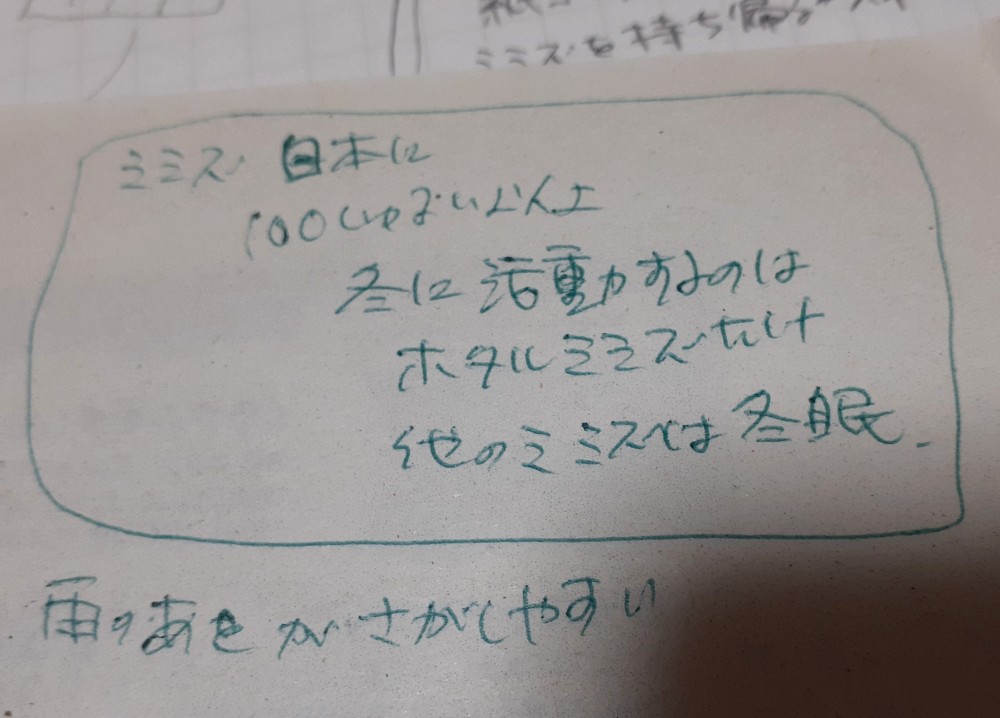 ミミズを持ち帰
ミミズ 日本に
100しゅるい以上
冬に活動するのは
ホタルミミズだけ
他のミミズは冬眠.
雨のあとがさがしやすい